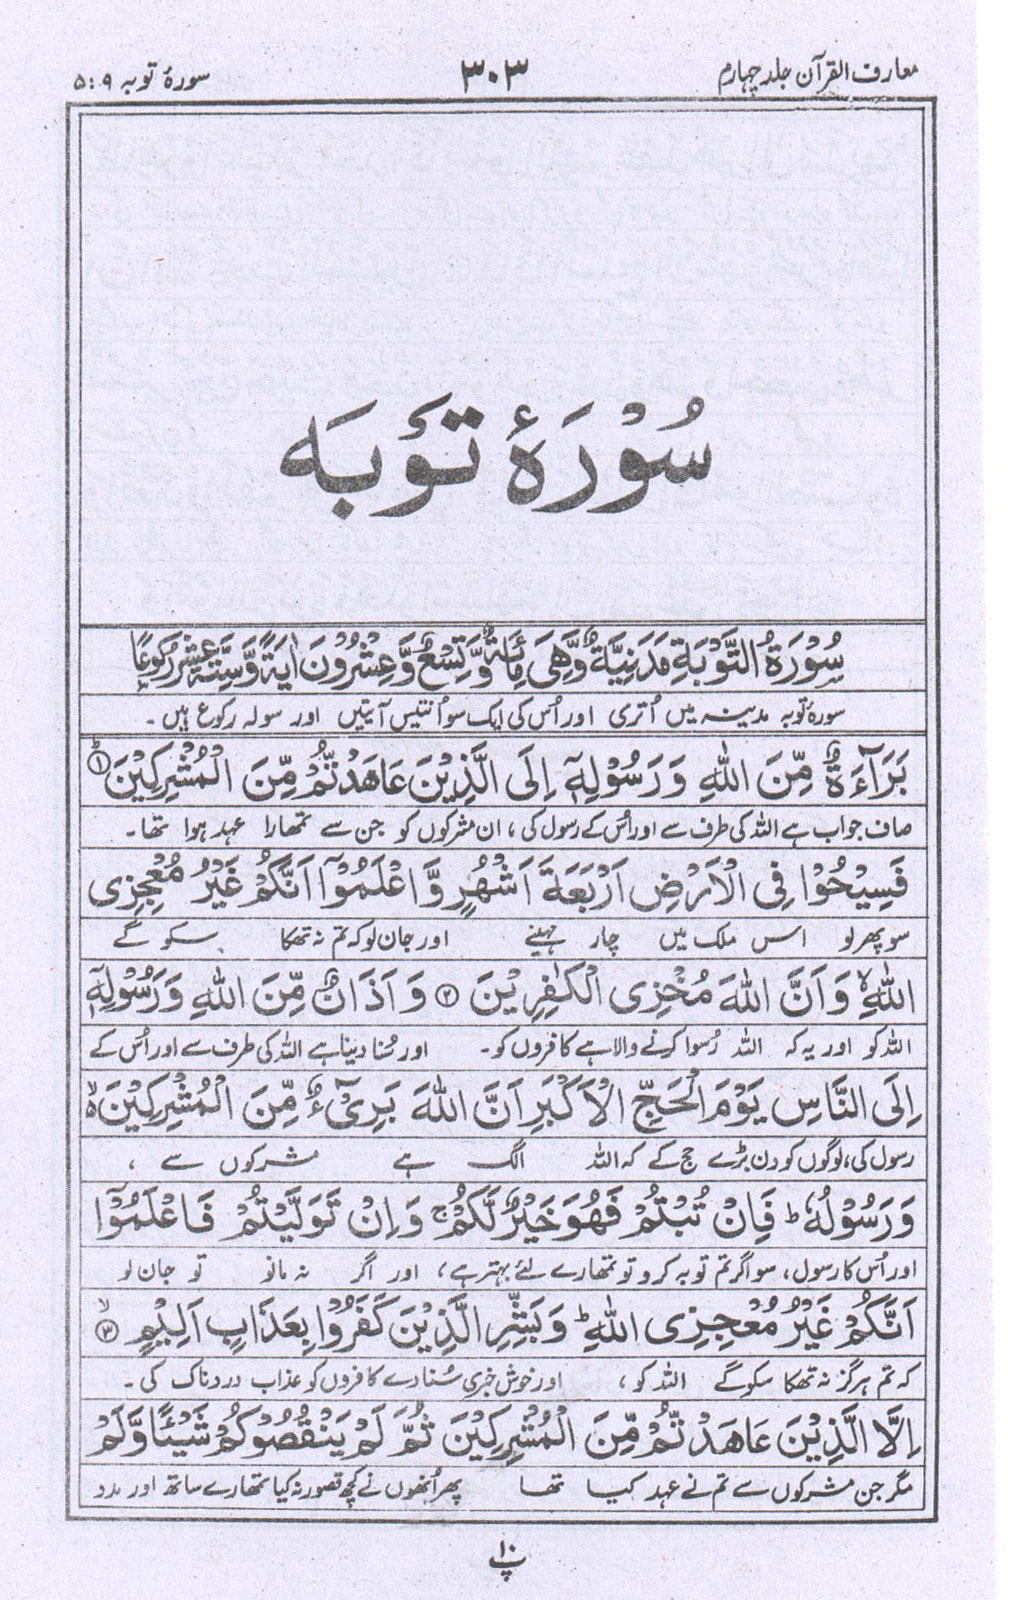 معارف القرآن جلد چہارم
۳۰۳
سورۂ توبہ ۹:۵
سُوْرَۂ تَوْبَہ
سُوْرَةُ التَّوْبَةِ مَدَنِيَّةٌ وَّهِيَ مِائَةٌ وَّتِسْعٌ وَّعِشْرُوْنَ اٰيَةً وَّسِتَّةَ عَشَرَ رُكُوْعًا
سورۂ توبہ مدینہ میں اُتری اور اُس کی ایک سو اُنتیس آیتیں اور سولہ رکوع ہیں۔
بَرَآءَةٌ مِّنَ اللّٰهِ وَرَسُوْلِهٖٓ اِلَى الَّذِيْنَ عَاهَدْتُّمْ مِّنَ الْمُشْرِكِيْنَ ﴿۱﴾ؕ
صاف جواب ہے اللہ کی طرف سے اور اُس کے رسول کی، ان مشرکوں کو جن سے تمھارا عہد ہوا تھا۔
فَسِيْحُوْا فِى الْاَرْضِ اَرْبَعَةَ اَشْهُرٍ وَّاعْلَمُوْٓا اَنَّكُمْ غَيْرُ مُعْجِزِى
سو پھر لو اس ملک میں چار مہینے اور جان لو کہ تم نہ تھکا سکو گے
اللّٰهِ ۙ وَاَنَّ اللّٰهَ مُخْزِى الْكٰفِرِيْنَ ﴿۲﴾ وَاَذَانٌ مِّنَ اللّٰهِ وَرَسُوْلِهٖٓ
اللہ کو اور یہ کہ اللہ رُسوا کرنے والا ہے کافروں کو۔ اور سُنا دینا ہے اللہ کی طرف سے اور اُس کے
اِلَى النَّاسِ يَوْمَ الْحَجِّ الْاَكْبَرِ اَنَّ اللّٰهَ بَرِىْٓءٌ مِّنَ الْمُشْرِكِيْنَ ۙ۬
رسول کی، لوگوں کو دن بڑے حج کے کہ اللہ الگ ہے مشرکوں سے ،
وَرَسُوْلُهٗ ؕ فَاِنْ تُبْتُمْ فَهُوَ خَيْرٌ لَّكُمْ ۚ وَاِنْ تَوَلَّيْتُمْ فَاعْلَمُوْٓا
اور اُس کا رسول، سو اگر تم توبہ کرو تو تمھارے لئے بہتر ہے، اور اگر نہ مانو تو جان لو
اَنَّكُمْ غَيْرُ مُعْجِزِى اللّٰهِ ؕ وَبَشِّرِ الَّذِيْنَ كَفَرُوْا بِعَذَابٍ اَلِيْمٍ ﴿۳﴾ۙ
کہ تم ہرگز نہ تھکا سکو گے اللہ کو، اور خوش خبری سُنا دے کافروں کو عذاب دردناک کی۔
اِلَّا الَّذِيْنَ عَاهَدْتُّمْ مِّنَ الْمُشْرِكِيْنَ ثُمَّ لَمْ يَنْقُصُوْكُمْ شَيْـًٔا وَّلَمْ
مگر جن مشرکوں سے تم نے عہد کیا تھا پھر اُنھوں نے کچھ قصور نہ کیا تمھارے ساتھ اور مدد
پ ۱۰